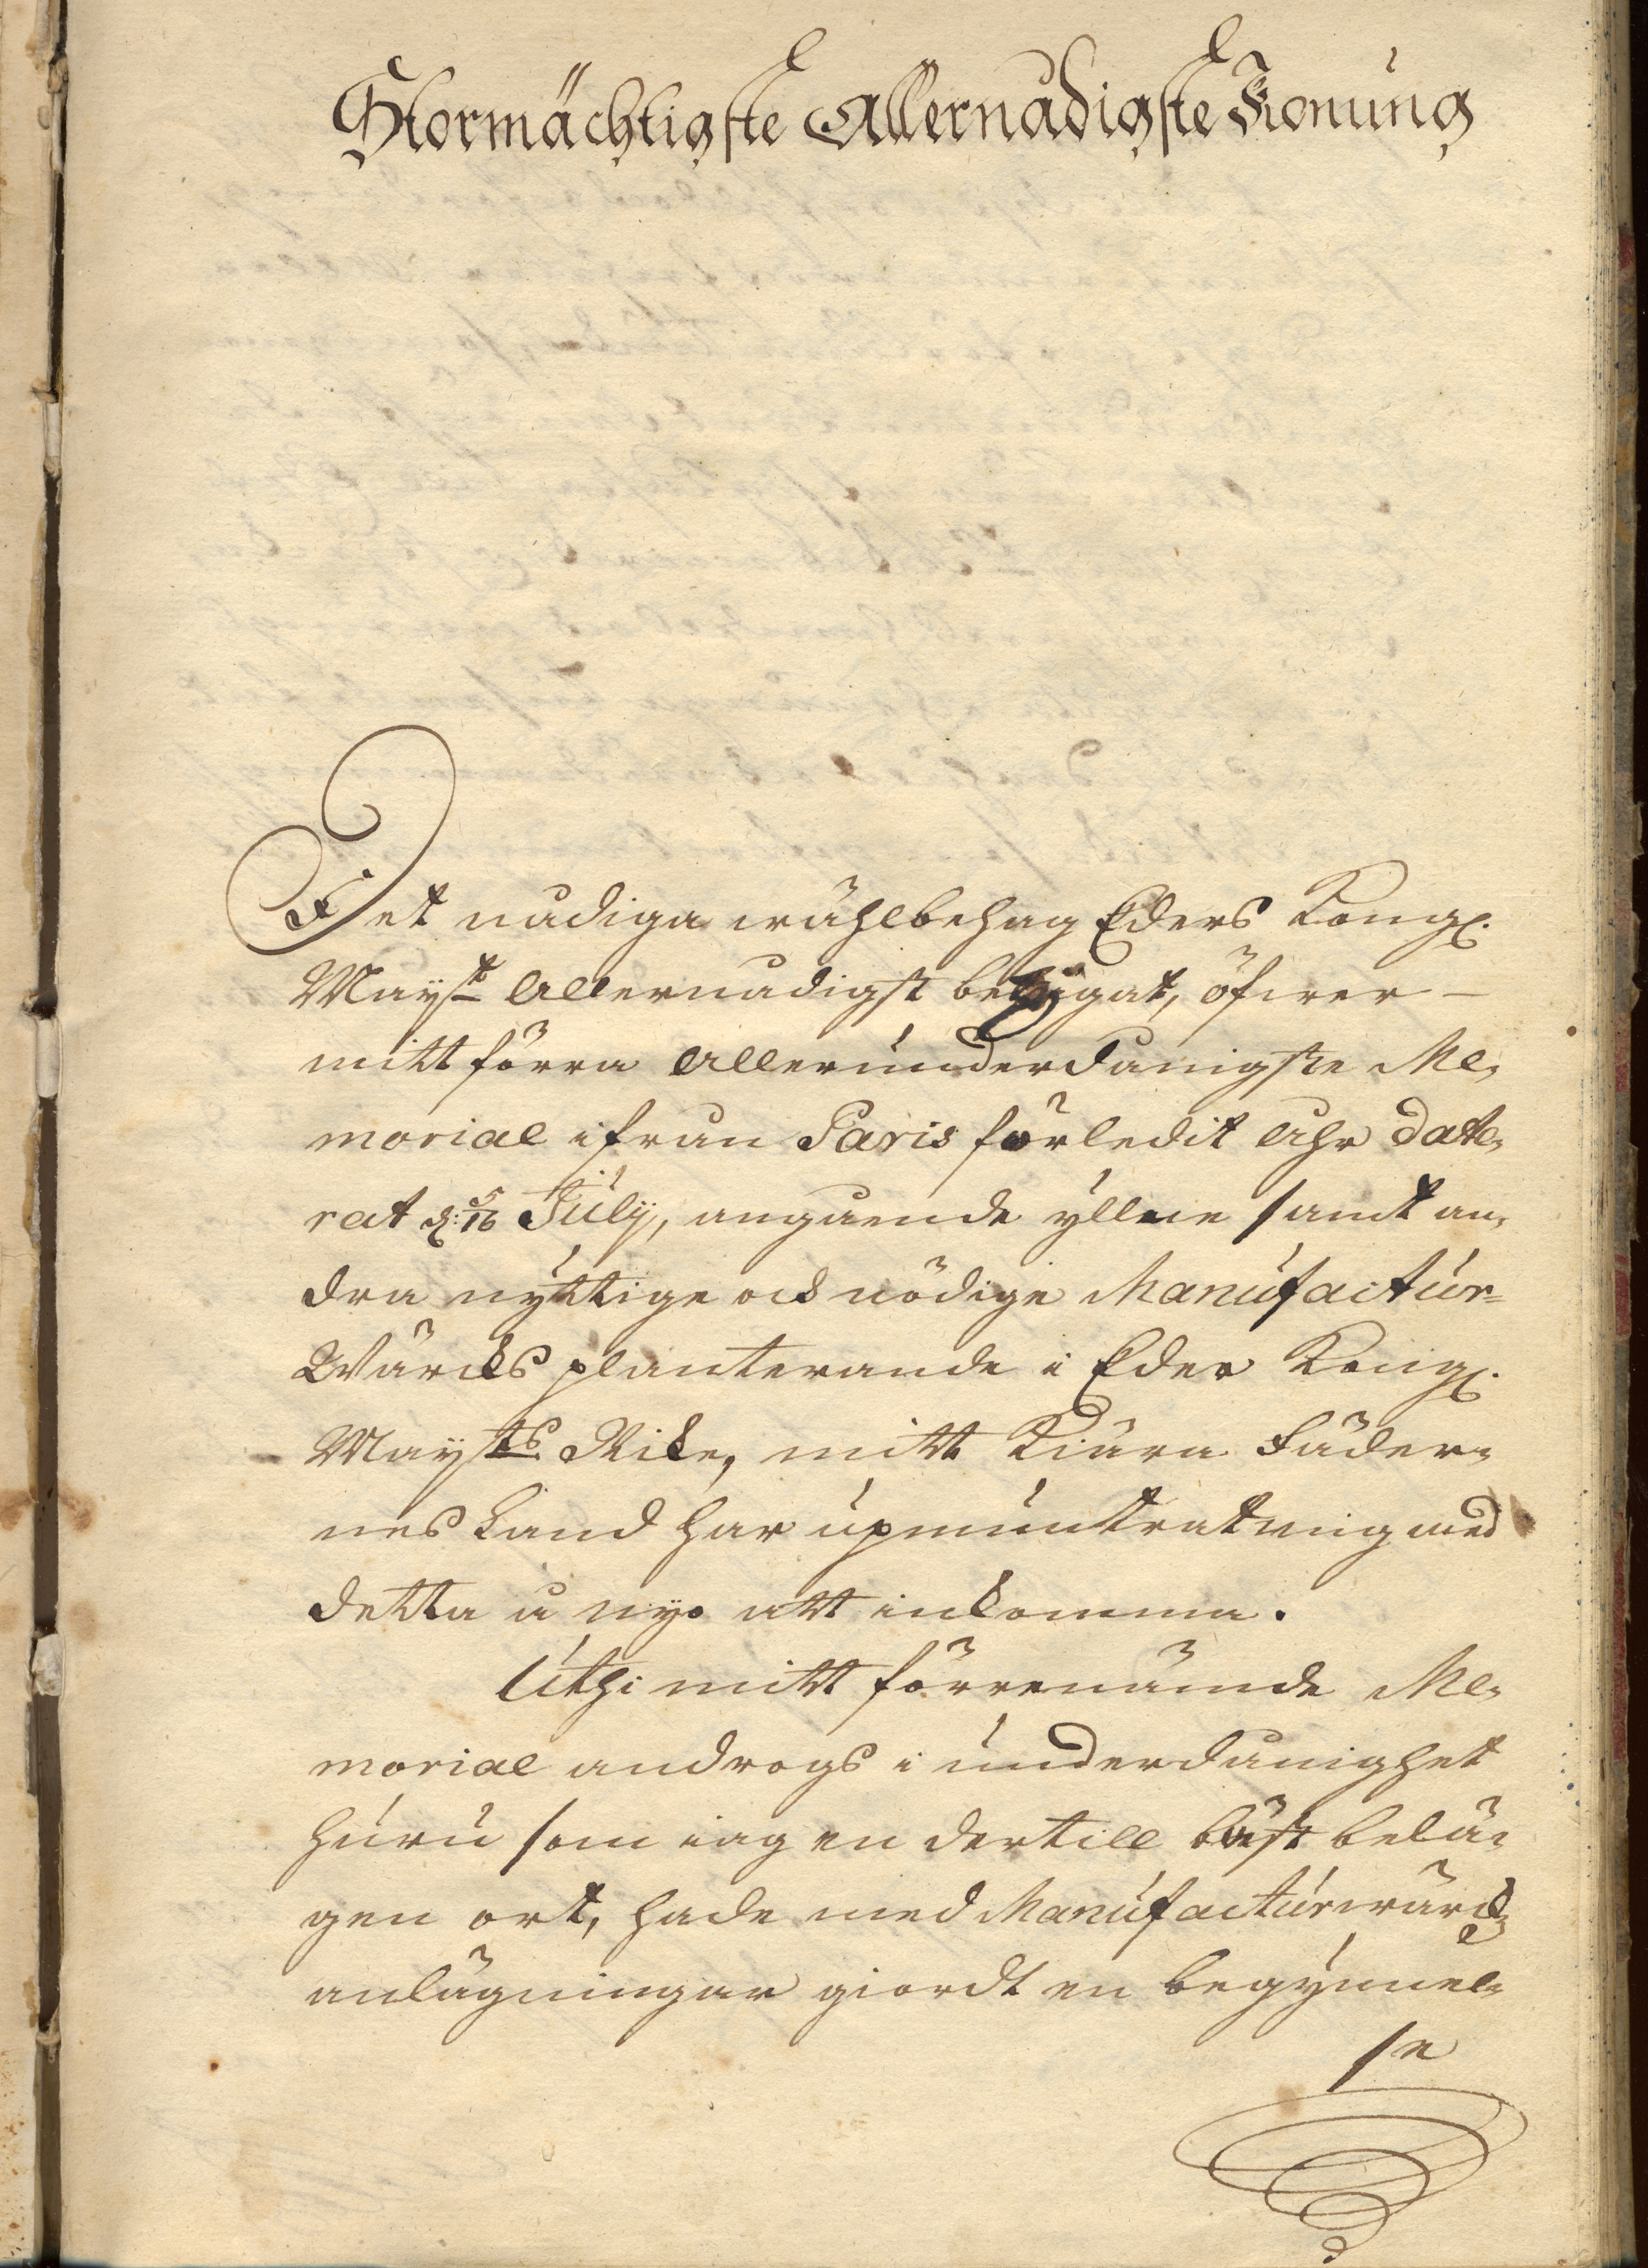 Stormächtigste Allernådigste Konung
Det nådiga wählbehag Eders Kongl.
Mayst Allernådigst betygat, öfwer
mitt förra Allerunderdånigste Me,
morial ifrån Paris förledit Ahr date,
rat d: 5/16 Julij, angående ylle samt an,
dra nyttige och nödige Manufactur=
Wärcks planterande i Eder Kongl.
Maysts Rike, mitt Kiära Fäder,
nes Land har upmuntrat mig med
detta å nyo att inkomma.
Uthi mitt förrenämde Me,
morial androgs i underdånighet
huru som iag en dertill bäst belä,
gen ort, hade med Manufacturwärcks
anlägningar giordt en begynnel,
se